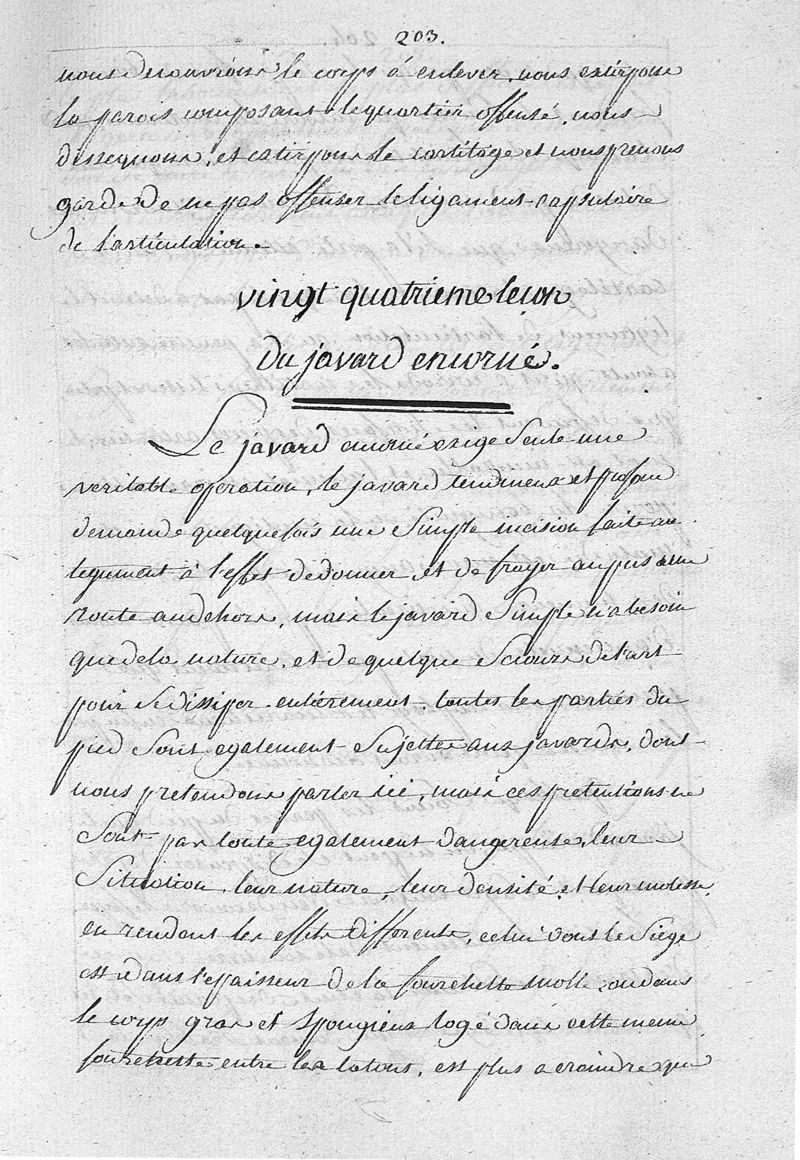 203.
nous decouvrons le corps à enlever, nous extirpons
la parois composant le quartier offensé, nous
dessequons, et extirpons le cartilage et nous prenons
garde de ne pas offenser le ligament capsulaire
de l'articulation.
vingt quatrieme lecon
Du javard encorné.
Le javard encorné exige seule une
veritable operation, le javard tendineux et
demande quelquefois une simple incision faite au
tegument à l'effet de donner et de frayer au pus une
route au dehors, mais le javard simple n'a besoin
que de la nature, et de quelque secours de l'art
pour se dissiper entièrement. toutes les parties du
pied sont egalement sujettes aux javards, dont
nous pretendons parler ici, mais ces pretentions ne
sont par toute egalement dangereuse, leur
situation, leur nature, leur densité et leur molesse,
en rendent les effets differents, celui dont le siége
est dans l'epaisseur de la fourchette molle, ou dans
le corps gras et spongieux logé dans cette meme
fourchette entre les talons, est plus a craindre que